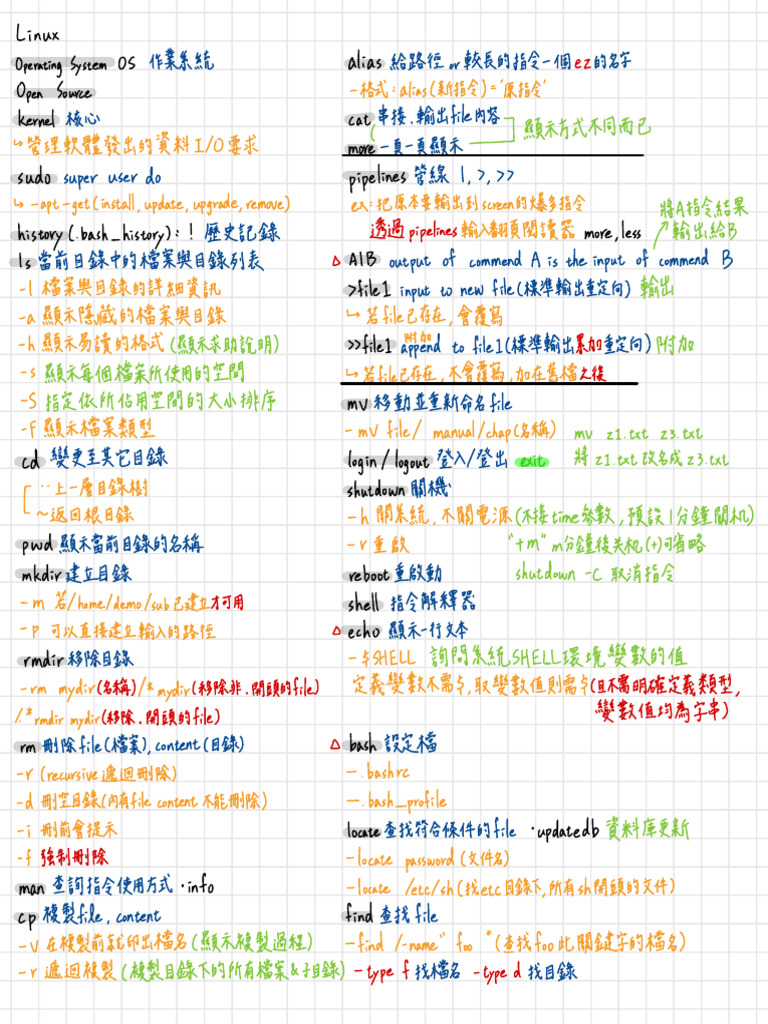 Linux
Operating System OS 作業系統
Open Source
kernel 核心
↳管理軟體發出的資料I/O要求
sudo super user do
↳ -apt-get(install, update, upgrade, remove)
history(.bash_history): ! 歷史記錄
ls 當前目錄中的檔案與目錄列表
-l 檔案與目錄的詳細資訊
-a 顯示隱藏的檔案與目錄
-h 顯示易讀的格式(顯示求助說明)
-s 顯示每個檔案所使用的空間
-S 指定依所佔用空間的大小排序
-F 顯示檔案類型
cd 變更至其它目錄
‥上一層目錄樹
~返回根目錄
pwd 顯示當前目錄的名稱
mkdir 建立目錄
-m 若/home/demo/sub已建立才可用
-p 可以直接建立輸入的路徑
rmdir 移除目錄
-rm mydir(名稱)/*mydir(移除非.開頭的file)
/.*rmdir mydir(移除.開頭的file)
rm 刪除file(檔案), content(目錄)
-r (recursive 遞迴刪除)
-d 刪空目錄(內有file content不能刪除)
-i 刪前會提示
-f 強制刪除
man 查詢指令使用方式 ·info
cp 複製file, content
-v 在複製前就印出檔名(顯示複製過程)
-r 遞迴複製(複製目錄下的所有檔案&子目錄)
alias 給路徑 or 較長的指令一個ez的名字
-格式: alias(新指令)='原指令'
cat 串接、輸出file內容
顯示方式不同而已
more 一頁一頁顯示
pipelines 管線 |, >, >>
ex: 把原本要輸出到screen的爆多指令
透過pipelines輸入翻頁閱讀器 more, less
將A指令結果
輸出給B
△ A|B output of commend A is the input of commend B
>file1 input to new file(標準輸出重定向) 輸出
↳若file已存在, 會覆寫
附加
>>file1 append to file1(標準輸出累加重定向) 附加
↳若file已存在, 不會覆寫, 加在舊檔之後
mv 移動並重新命名file
-mv file/ manual/chap(名稱) mv z1.txt z3.txt
login/logout 登入/登出 exit 將z1.txt改名成z3.txt
shutdown 關機
-h 關系統, 不關電源(不接time參數, 預設1分鐘關机)
-r 重啟 "+m" m分鐘後关机(+)可省略
reboot 重啟動 shutdown -C 取消指令
shell 指令解釋器
△ echo 顯示一行文本
-$SHELL 詢問系統SHELL環境變數的值
定義變數不需$, 取變數值則需$(且不需明確定義類型,
變數值均為字串)
△ bash 設定檔
-.bashrc
-.bash_profile
locate 查找符合條件的file ·updatedb 資料庫更新
-locate password(文件名)
-locate /etc/sh(找etc目錄下, 所有sh開頭的文件)
find 查找file
-find /-name" foo "(查找foo此關鍵字的檔名)
-type f 找檔名 -type d 找目錄